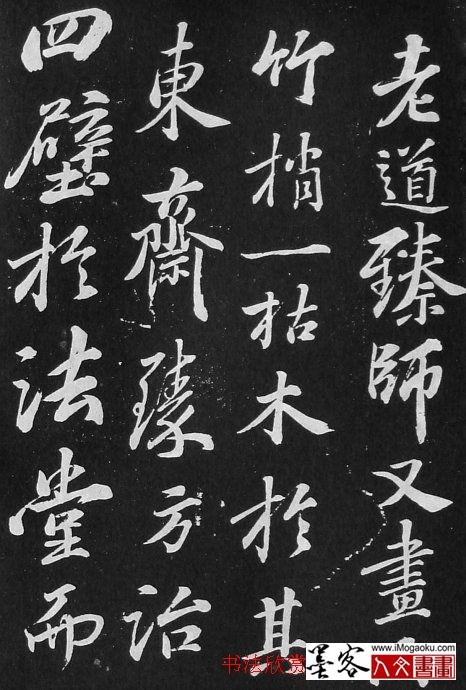 老道臻師又畫
竹梢一枯木於其
東齋臻方治
四壁於法堂而
书法欣赏
墨客
www.iMogaoku.com
人文書畫